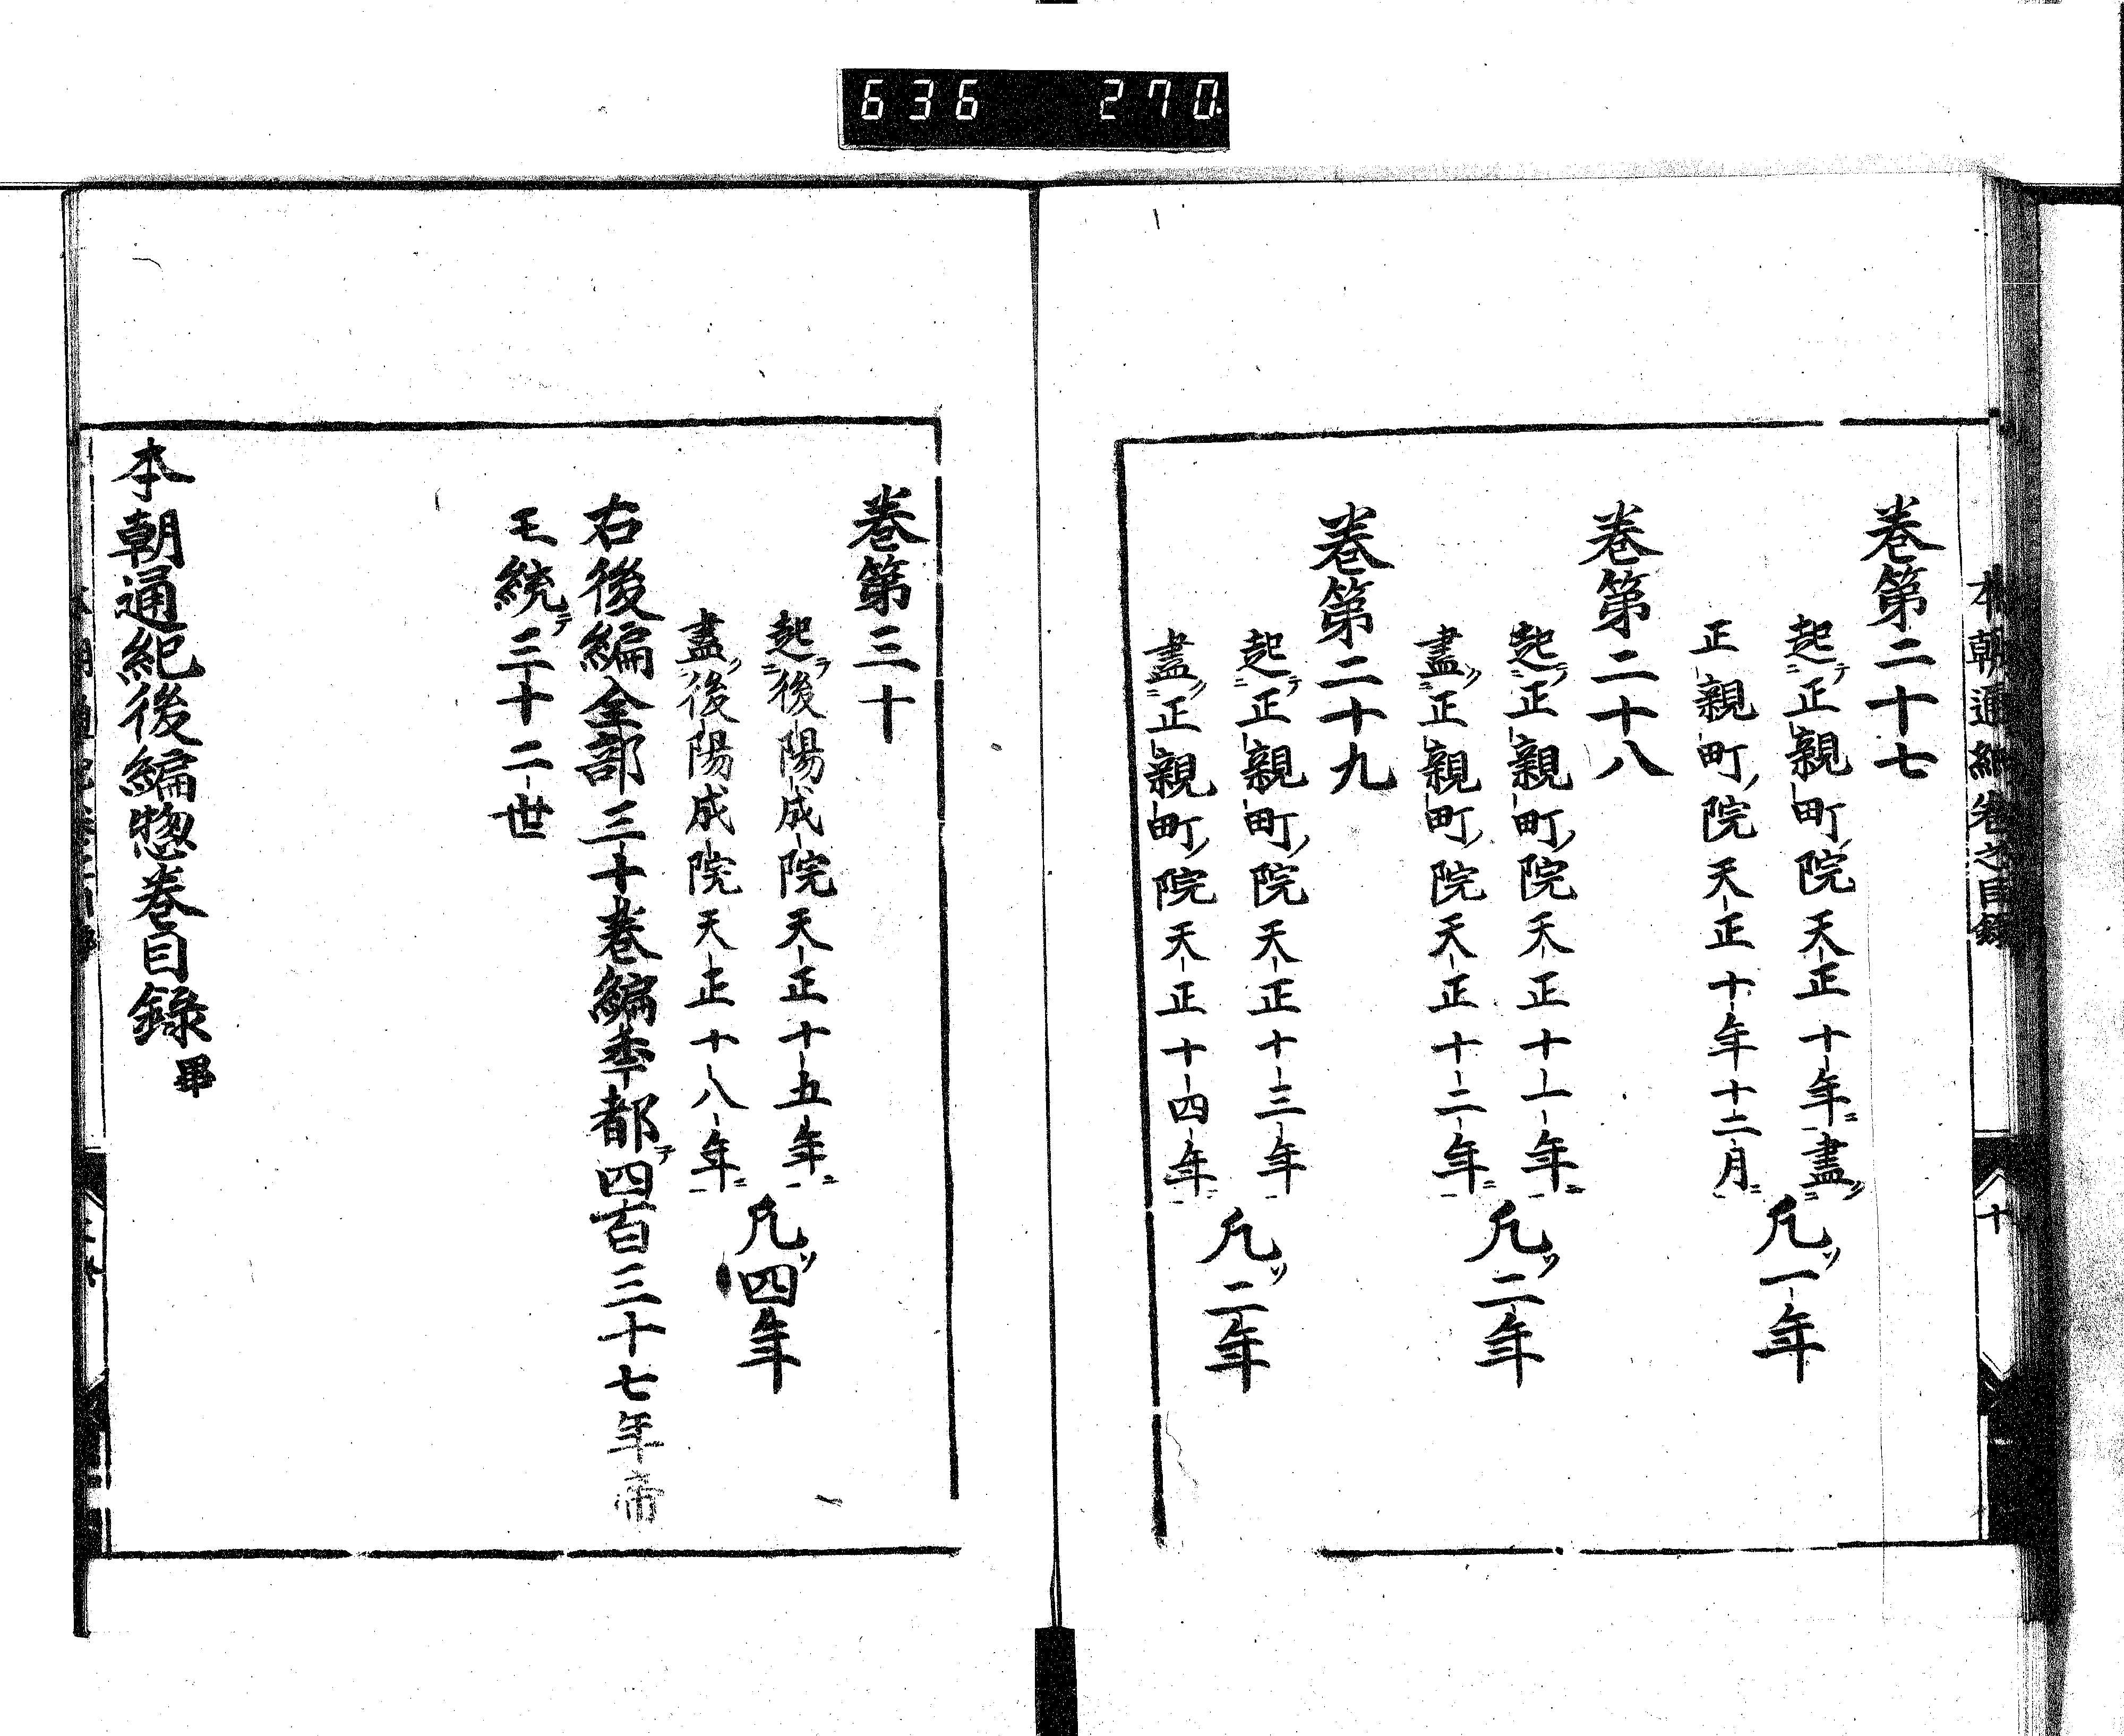 636 270
本朝通紀卷之目録
卷第二十七
起テ正親町ノ院天正十年ニ盡ク
正親町ノ院天正十年十二月ニ
凡ソ一年
卷第二十八
起テ正親町ノ院天正十一年ニ
盡ク正親町ノ院天正十二年ニ
凡ソ二年
卷第二十九
起テ正親町ノ院天正十三年
盡ク正親町ノ院天正十四年
凡ソ二年
十
卷第三十
起テ後陽成院天正十五年ニ
盡ク後陽成院天正十八年ニ
凡ソ四年
右後編全部三十卷編季都テ四百三十七年帝
王統テ三十二世
本朝通紀後編惣卷目録畢